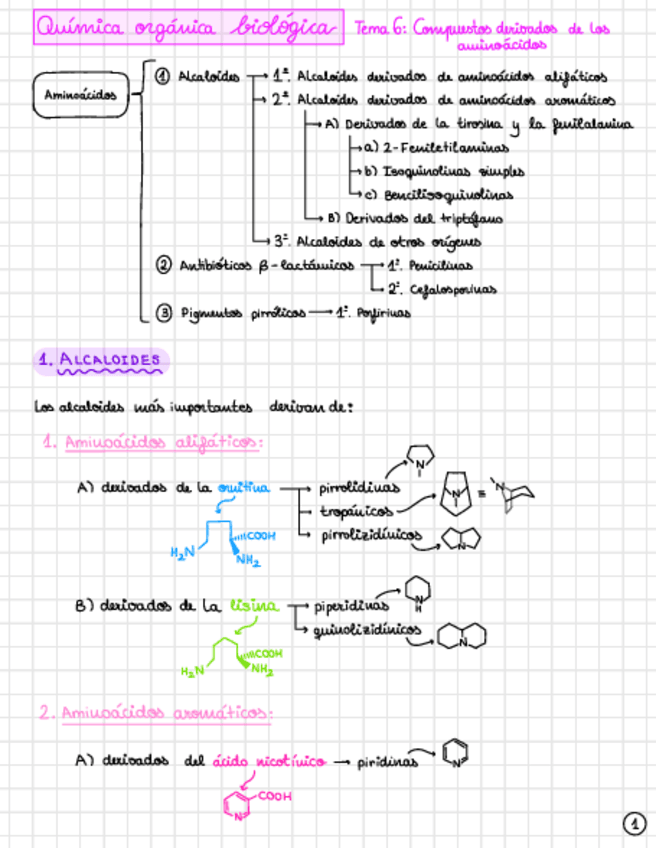 Química orgánica biológica Tema 6: Compuestos derivados de los
aminoácidos
Aminoácidos
① Alcaloides → 1º. Alcaloides derivados de aminoácidos alifáticos
→ 2º. Alcaloides derivados de aminoácidos aromáticos
→ A) Derivados de la tirosina y la fenilalanina
→ a) 2-Feniletilaminas
→ b) Isoquinolinas simples
→ c) Bencilisoquinolinas
→ B) Derivados del triptófano
→ 3º. Alcaloides de otros orígenes
② Antibióticos β-lactámicos → 1º. Penicilinas
→ 2º. Cefalosporinas
③ Pigmentos pirrólicos → 1º. Porfirinas
1. ALCALOIDES
Los alcaloides más importantes derivan de:
1. Aminoácidos alifáticos:
A) derivados de la ornitina → pirrolidinas
N
→ tropánicos
N ≡ N
→ pirrolizidínicos
N
H₂N COOH NH₂
B) derivados de la lisina → piperidinas
N
H
→ quinolizidínicos
N
H₂N COOH NH₂
2. Aminoácidos aromáticos:
A) derivados del ácido nicotínico → piridinas
N
COOH
N
1